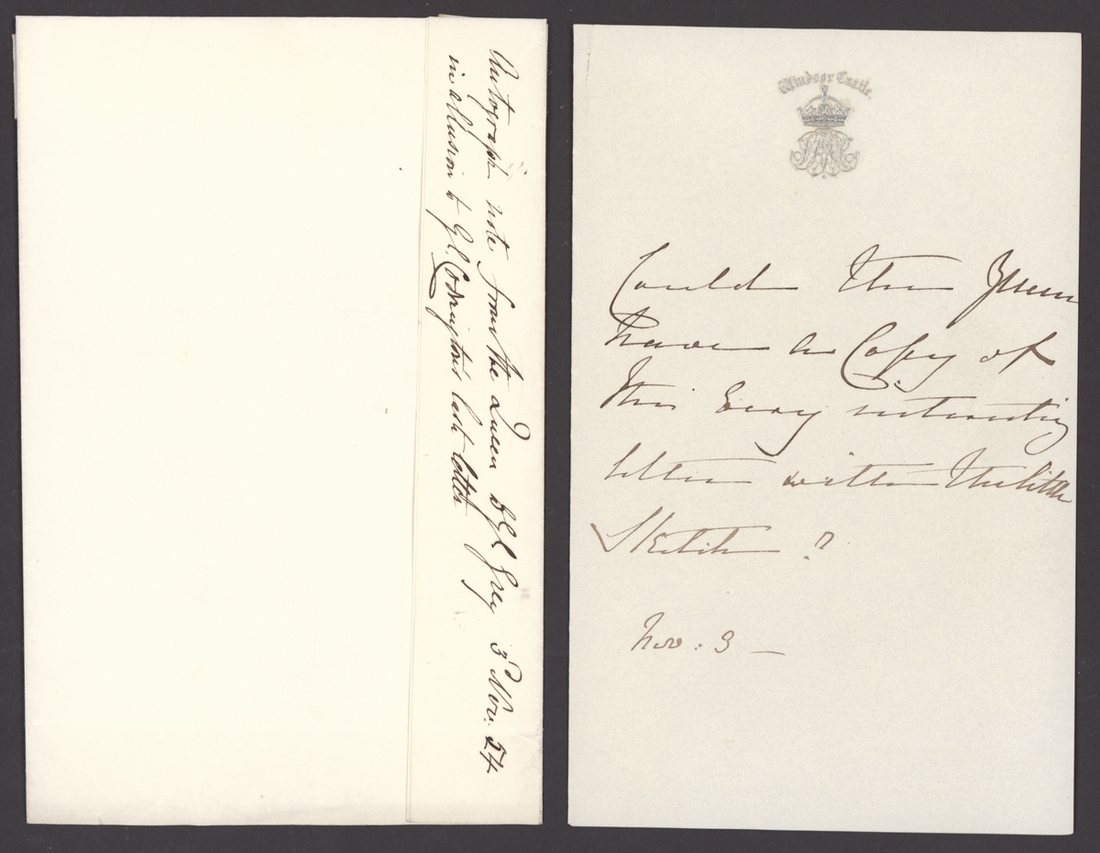 Autograph note from the Queen to Gl Grey 3 Nov. 54
in allusion to Gl Codrington's last letter
Windsor Castle.
Could the Queen
have a Copy of
this very interesting
letter with the little
Sketch?
Nov: 3 –